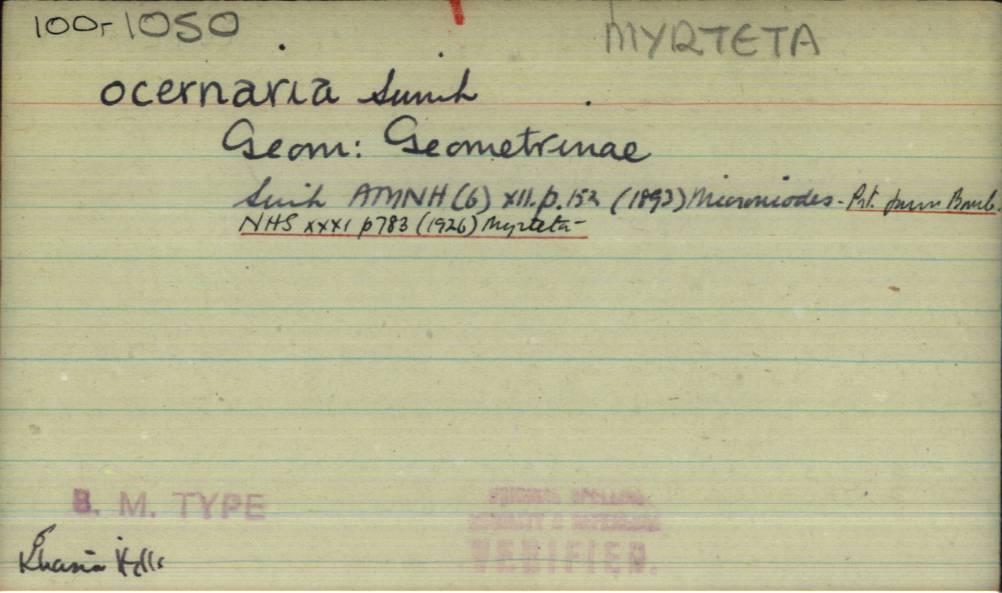 100r 1050
MYRTETA
ocernaria Swinh
Geom: Geometrinae
Swinh AMNH (6) XII. p. 152 (1893) Microniodes - Prt. Journ Bomb.
NHS xxxi p783 (1926) Myrteta -
B. M. TYPE
ORIGINAL SPELLING,
LOCALITY & REFERENCE
VERIFIED.
Khasia Hills